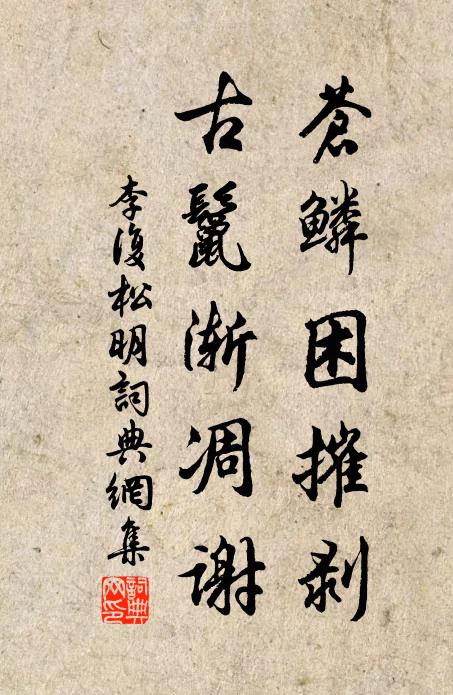 蒼鱗困摧剥
古鬣渐凋谢
李復松明詞典網集
詞典
网印